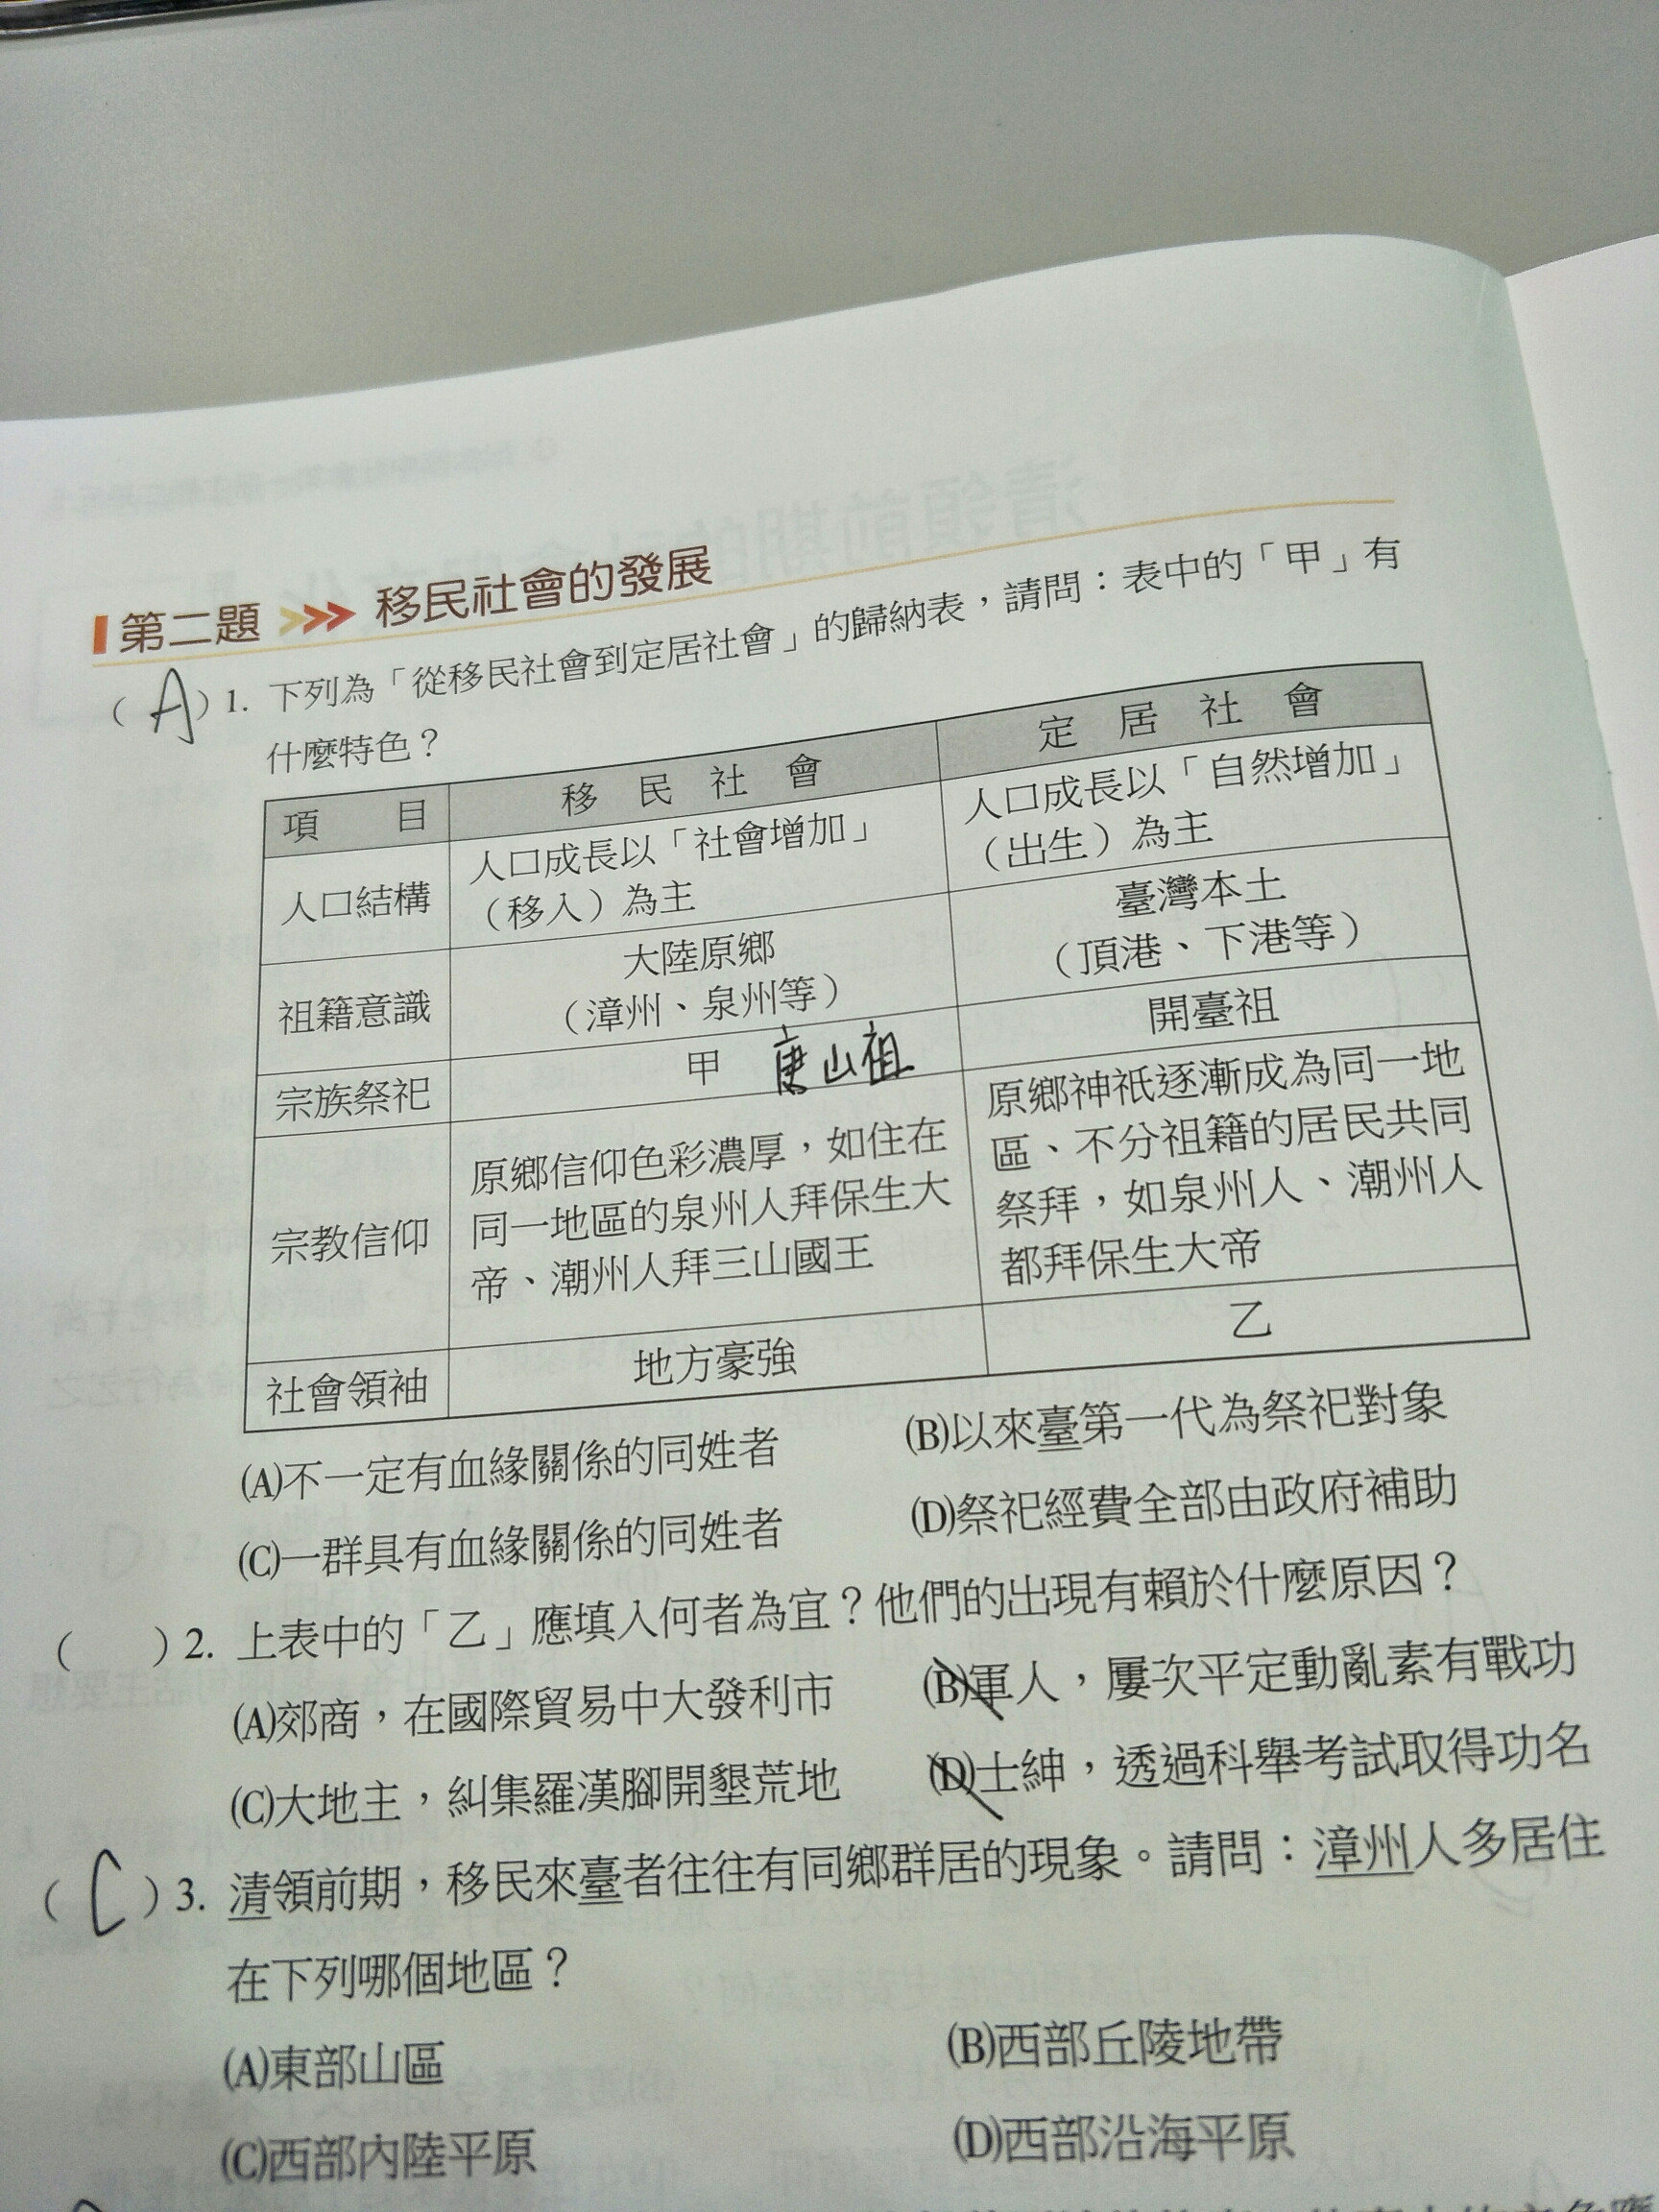 第二題 >>> 移民社會的發展
( A ) 1. 下列為「從移民社會到定居社會」的歸納表，請問：表中的「甲」有
什麼特色？
項 目 移 民 社 會 定 居 社 會
人口結構 人口成長以「社會增加」（移入）為主 人口成長以「自然增加」（出生）為主
祖籍意識 大陸原鄉（漳州、泉州等） 臺灣本土（頂港、下港等）
宗族祭祀 甲 唐山祖 開臺祖
宗教信仰 原鄉信仰色彩濃厚，如住在同一地區的泉州人拜保生大帝、潮州人拜三山國王 原鄉神祇逐漸成為同一地區、不分祖籍的居民共同祭拜，如泉州人、潮州人都拜保生大帝
社會領袖 地方豪強 乙
(A)不一定有血緣關係的同姓者 (B)以來臺第一代為祭祀對象
(C)一群具有血緣關係的同姓者 (D)祭祀經費全部由政府補助
( ) 2. 上表中的「乙」應填入何者為宜？他們的出現有賴於什麼原因？
(A)郊商，在國際貿易中大發利市 (B)軍人，屢次平定動亂素有戰功
(C)大地主，糾集羅漢腳開墾荒地 (D)士紳，透過科舉考試取得功名
( C ) 3. 清領前期，移民來臺者往往有同鄉群居的現象。請問：漳州人多居住
在下列哪個地區？
(A)東部山區 (B)西部丘陵地帶
(C)西部內陸平原 (D)西部沿海平原